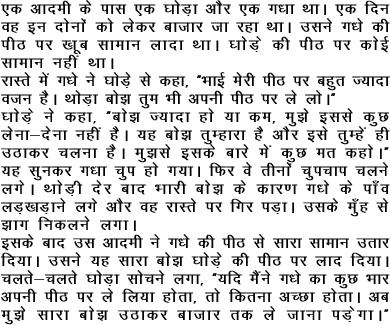 एक आदमी के पास एक घोड़ा और एक गधा था। एक दिन
वह इन दोनों को लेकर बाजार जा रहा था। उसने गधे की
पीठ पर खूब सामान लादा था। घोड़े की पीठ पर कोई
सामान नहीं था।
रास्ते में गधे ने घोड़े से कहा, “भाई मेरी पीठ पर बहुत ज्यादा
वजन है। थोड़ा बोझ तुम भी अपनी पीठ पर ले लो।”
घोड़े ने कहा, “बोझ ज्यादा हो या कम, मुझे इससे कुछ
लेना–देना नहीं है। यह बोझ तुम्हारा है और इसे तुम्हें ही
उठाकर चलना है। मुझसे इसके बारे में कुछ मत कहो।”
यह सुनकर गधा चुप हो गया। फिर वे तीनों चुपचाप चलने
लगे। थोड़ी देर बाद भारी बोझ के कारण गधे के पाँव
लड़खड़ाने लगे और वह रास्ते पर गिर पड़ा। उसके मुँह से
झाग निकलने लगा।
इसके बाद उस आदमी ने गधे की पीठ से सारा सामान उतार
दिया। उसने यह सारा बोझ घोड़े की पीठ पर लाद दिया।
चलते–चलते घोड़ा सोचने लगा, “यदि मैंने गधे का कुछ भार
अपनी पीठ पर ले लिया होता, तो कितना अच्छा होता। अब
मुझे सारा बोझ उठाकर बाजार तक ले जाना पड़ेगा।”